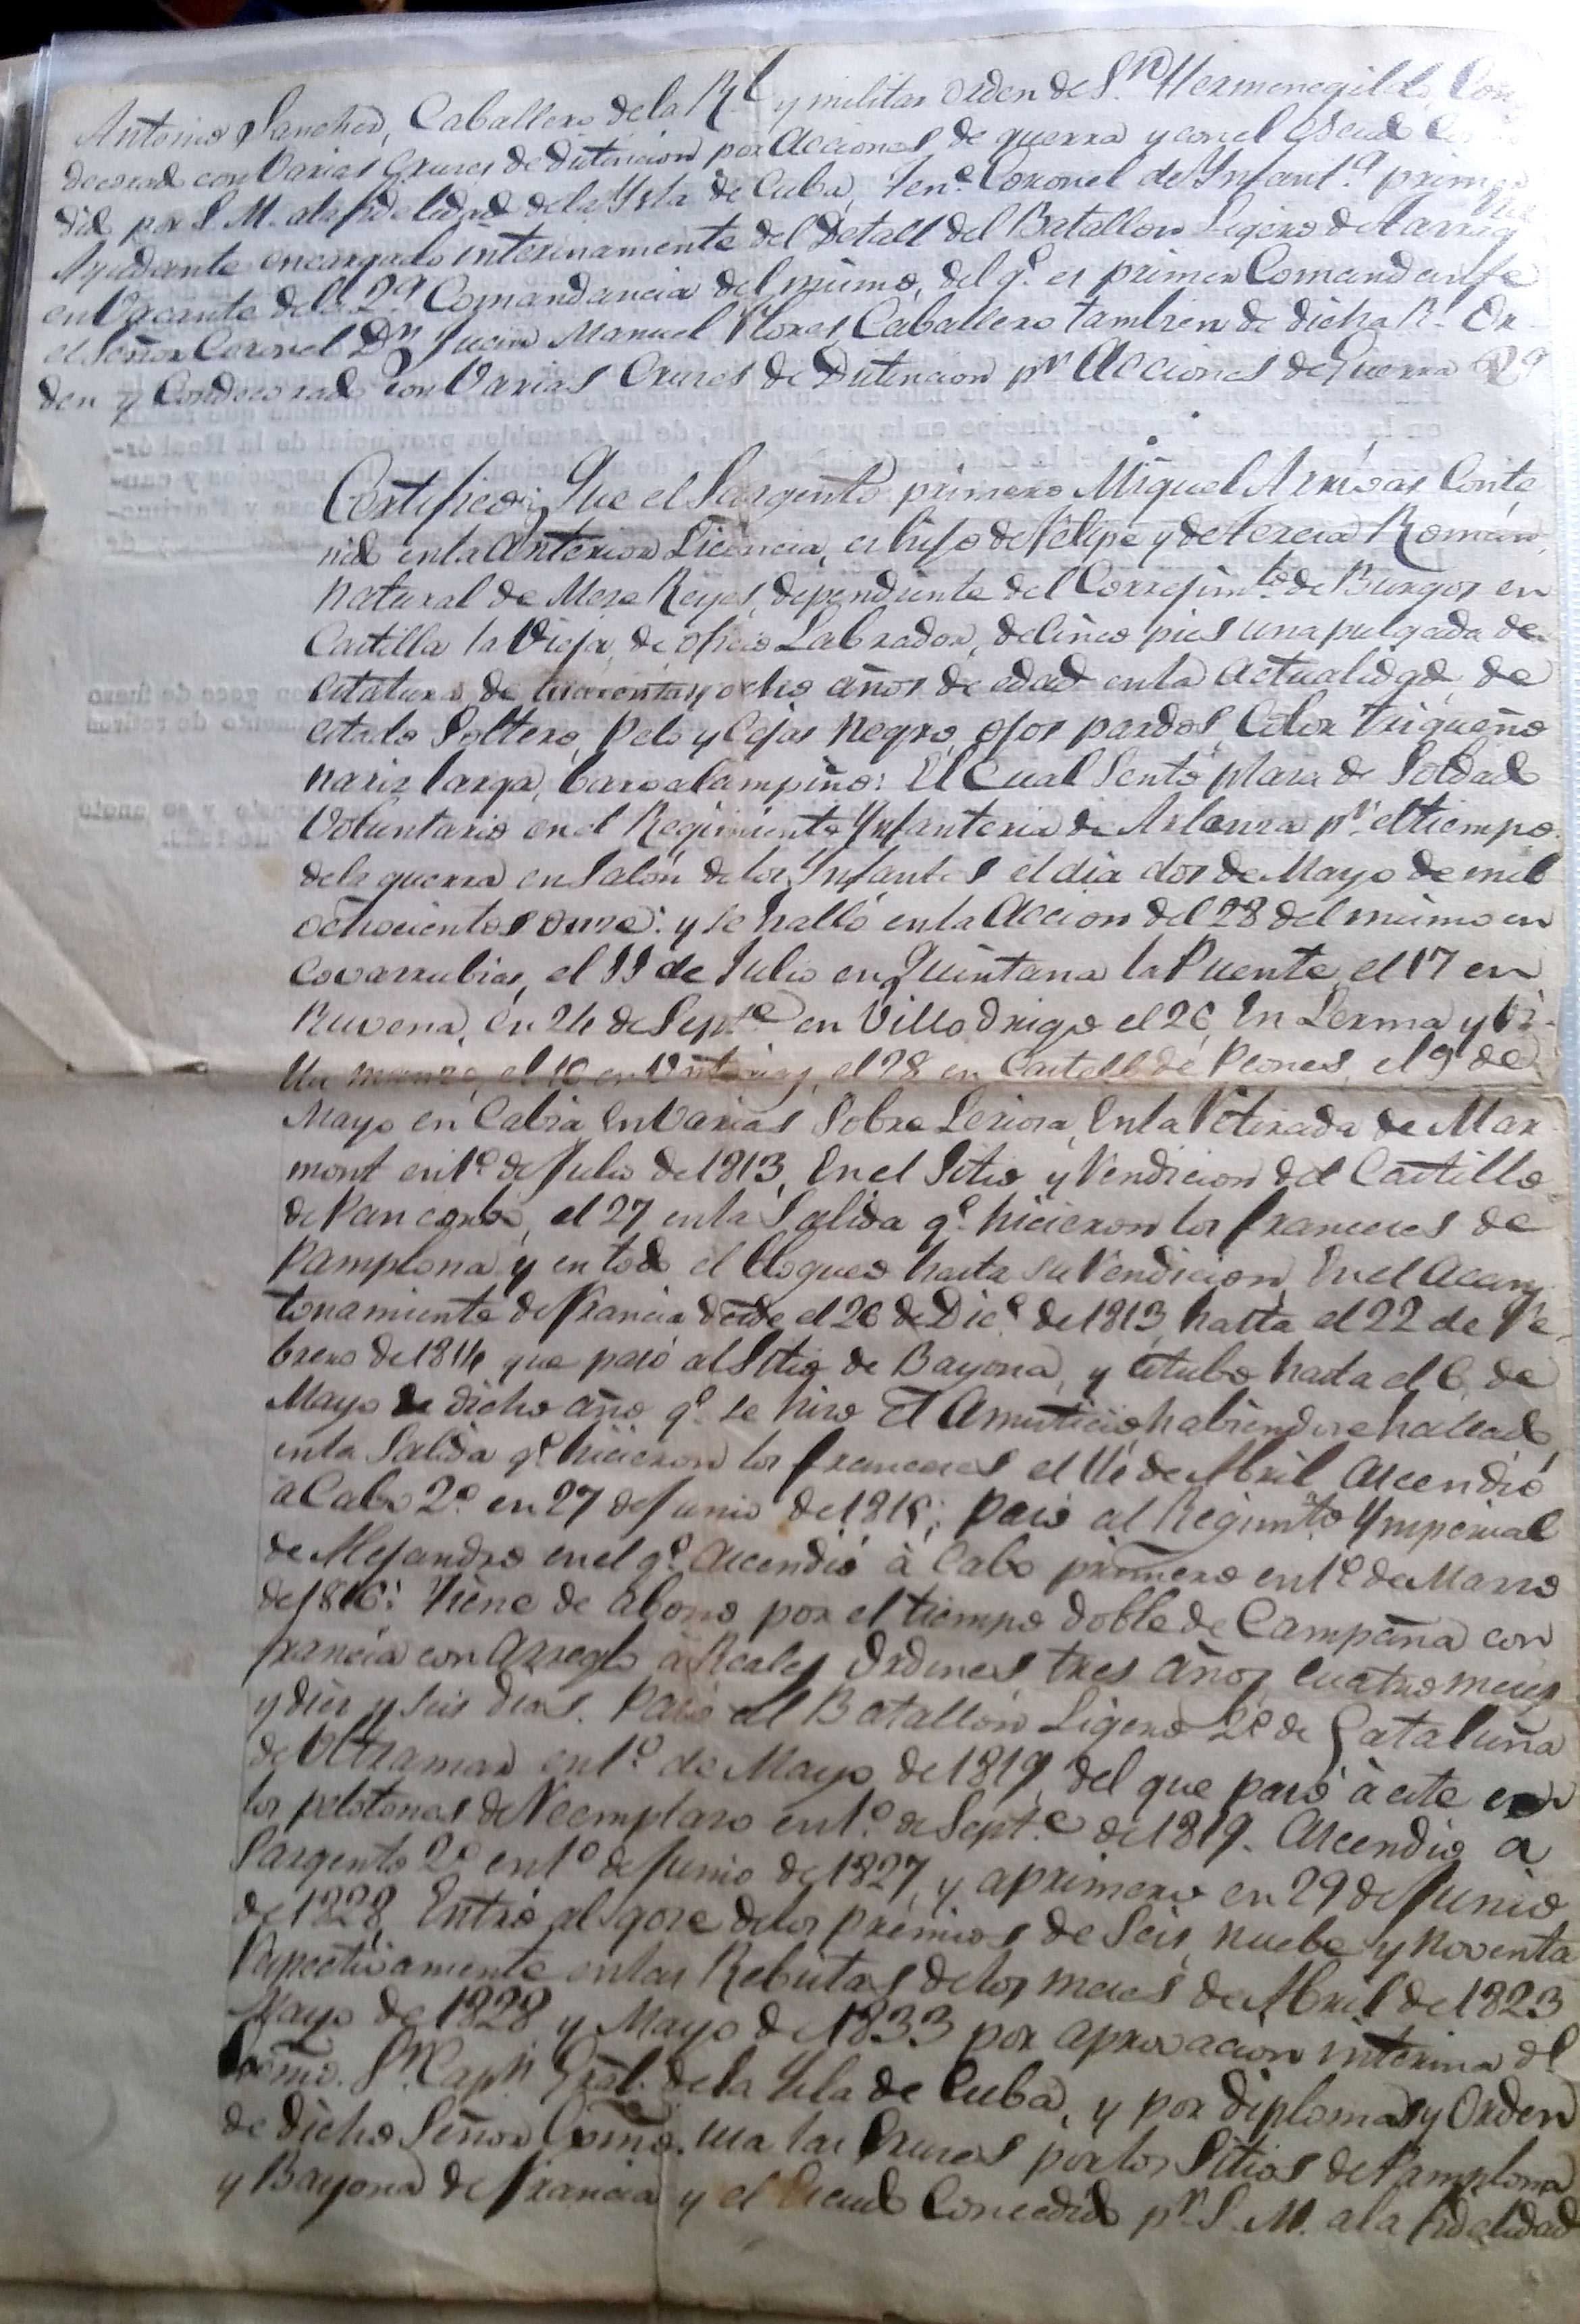 Antonio Sanchez, Caballero de la Rl. y militar Orden de Sn. Hermenegildo, Con
decorado con Varias Cruzes de distencion por Acciones de guerra y con el Escudo
dido por S. M. ala fidelidad de la Ysla de Cuba, Tene. Coronel de Ynfanta. primer
Ayudante encargado interinamente del Detall del Batallon Ligero de Tarrag
en Vacante de la 2a. Comandancia del mismo, del qe. es primer Comandante
el Señor Coronel Dn. Manuel Flores, Caballero tambien de dicha Rl. Or-
den y Condecorado con Varias Cruzes de Distencion pr. Acciones de Guerra
Certifico: Que el Sargento primero Miguel Arrivas Conte
nido en la Anterior Licencia, es hijo de Felipe y de Tereza Roman,
natural de Mese Reyes, dependiente del Correjimto. de Burgos en
Castilla la Vieja, de oficio Labrador, de cinco pies una pulgada de
estatura de cuarenta y ocho años de edad en la actualidad, de
estado Soltero, pelo y Cejas negro, ojos pardos, Color trigueño
nariz larga, barba lampiño: El Cual Sentó plaza de Soldado
Voluntario en el Regimiento Ynfanteria de Arlanza pr. el tiempo
dela guerra en Salón de los Ynfantes el dia dos de Mayo de mil
ochocientos onze: y se halló en la Accion del 28 del mismo en
Covarrubias, el 11 de Julio en Quintana la Puente, el 17 en
Ruvena, en 24 de Septe. en Villodrigo el 26, En Lerma y
el 16 en el 28 en Castell de Peones, el 9 de
Mayo en Cabia En Varias Sobre En la Retirada de Mar
mont en 1o. de Julio de 1813, En el Sitio y Rendicion del Castillo
de Pancorbo, el 27 en la Salida qe. hicieron los franceses de
Pamplona y en todo el bloqueo hasta su Rendicion, En el Acan
tonamiento de Francia desde el 26 de Dice. de 1813, hasta el 22 de Fe-
brero de 1814 que pasó al Sitio de Bayona, y estubo hasta el 6 de
Mayo de dicho año qe. se hizo el Amisticio, habiendose hallado
en la Salida qe. hicieron los franceses el 14 de Abril, Ascendió
a Cabo 2o. en 27 de Junio de 1815; pasó al Regimto. Ymperial
de Alejandro en el qe. Ascendió à Cabo primero en 1o. de Marzo
de 1816: Tiene de abono por el tiempo doble de Campaña con
francia con arreglo à Reales Ordenes, tres años, cuatro meses
y diez y seis dias. Pasó al Batallón Ligero 2o. de Cataluña
de Ultramar en 1o. de Mayo de 1819, del que pasó à este en
los pelotones de Reemplazo en 1o. de Septe. de 1819. Ascendio a
Sargento 2o. en 1o. de Junio de 1827, y a primero en 29 de Junio
de 1828, Entró al goze delos premios de Seis, nuebe y noventa
Respectivamente en las Rebistas delos meses de Abril de 1823,
Mayo de 1828 y Mayo de 1833 por aprovacion interina del
Exmo. Sr. Capn. Gral. de la Ysla de Cuba, y por diplomas y Orden
de dicho Señor Exmo. usa las Cruzes por los Sitios de Pamplona
y Bayona de Francia y el Escudo Concedido pr. S. M. ala fidelidad